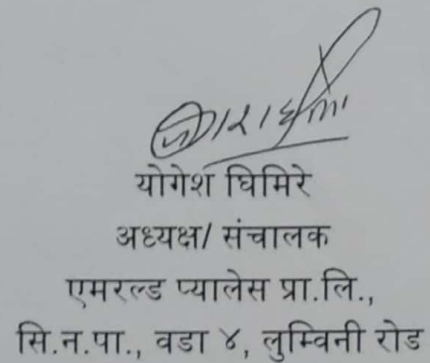 योगेश घिमिरे
अध्यक्ष/ संचालक
एमरल्ड प्यालेस प्रा.लि.,
सि.न.पा., वडा ४, लुम्विनी रोड